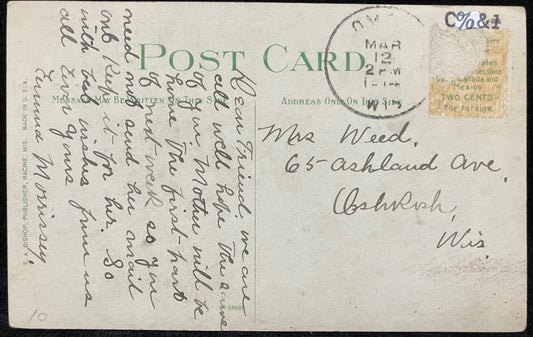 POST CARD
MESSAGE MAY BE WRITTEN ON THIS SIDE
ADDRESS ONLY ON THIS SIDE
Dear Friend. we are
all well hope the same
of you Mother will be
home the first part
of next week so you
need not send her mail
only Keep it for her. So
with best wishes from us
all Ever yours
Emma Morrissey.
Mrs Weed.
65 Ashland Ave.
Oshkosh,
Wis.
MAR
12
2 PM
WIS
C%&1
Canada and
Mexico
TWO CENTS
For Foreign.
E. A. BISHOP, PUBLISHER, RACINE, WIS. MADE IN U.S.A.
10